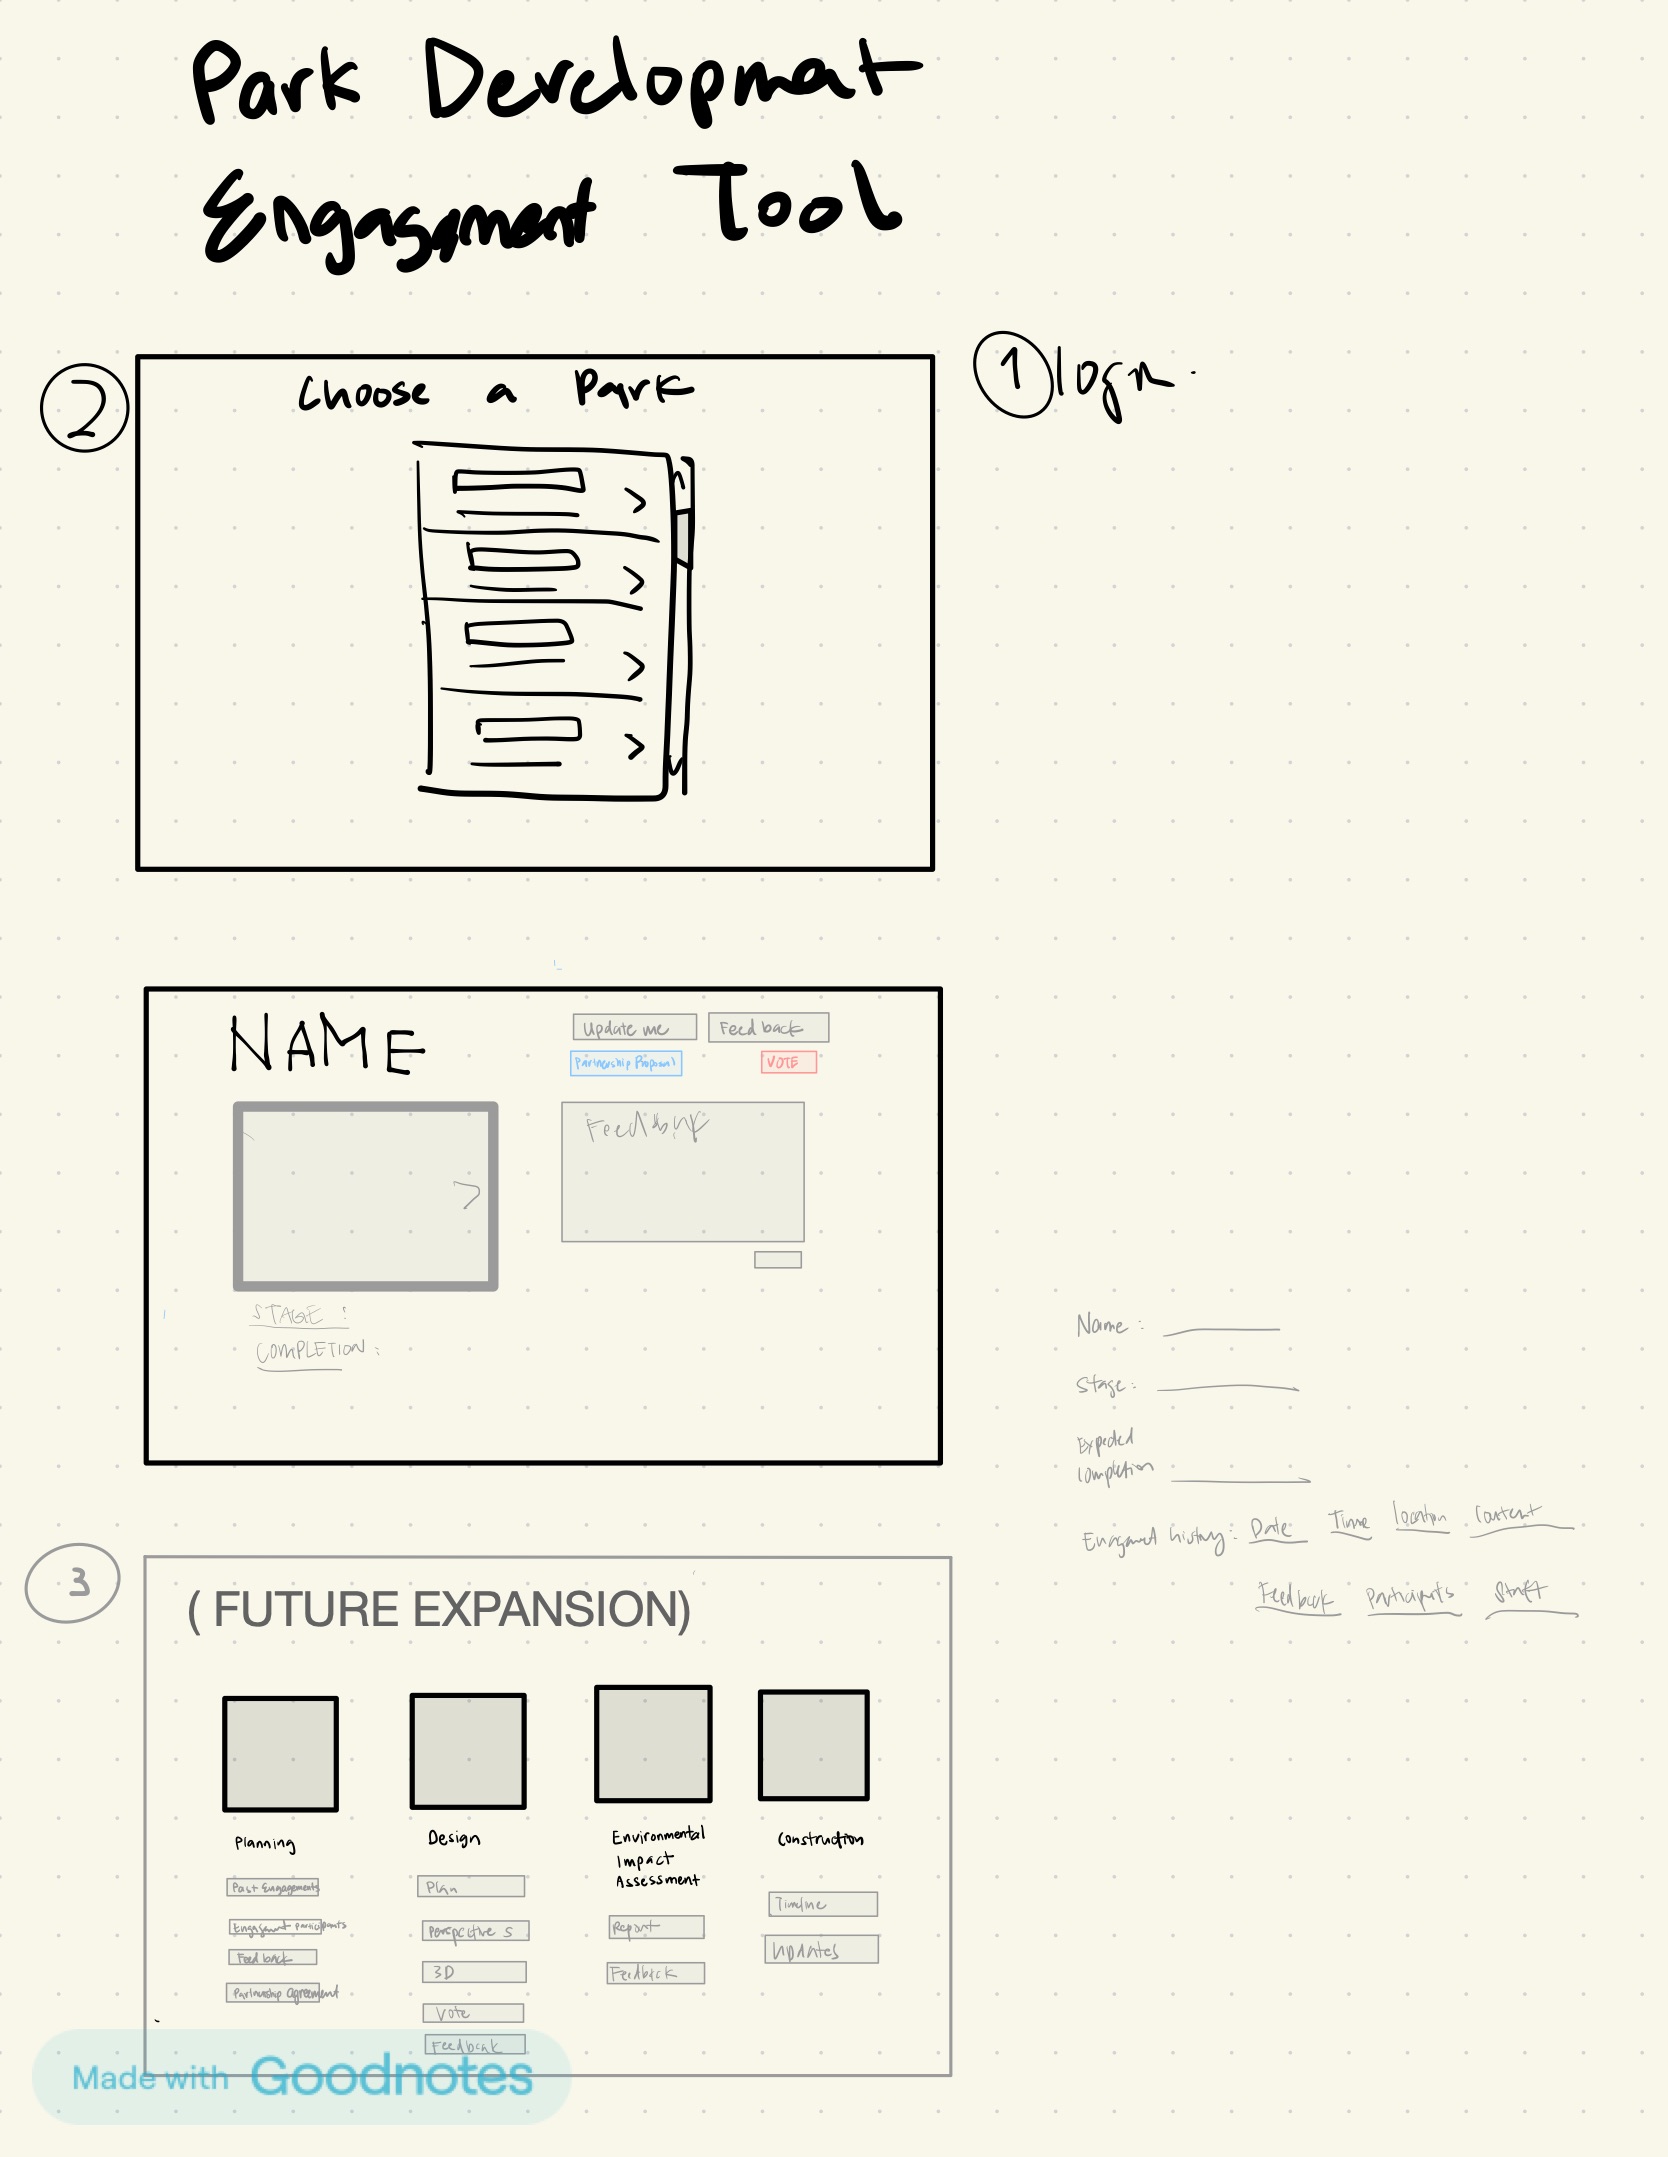 Park Developmat
Engagement Tool
① login.
② Choose a Park
NAME
Update me
Feedback
Partnership Proposal
VOTE
Feedback
STAGE :
COMPLETION :
Name :
Stage :
Expected
Completion
Engagement history : Date Time location Content
Feedback Participants Staff
3
( FUTURE EXPANSION)
Planning
Past Engagements
Engagement participants
Feedback
Partnership agreement
Design
Plan
Perspective s
3D
Vote
Feedback
Environmental
Impact
Assessment
Report
Feedback
Construction
Timeline
Updates
Made with Goodnotes